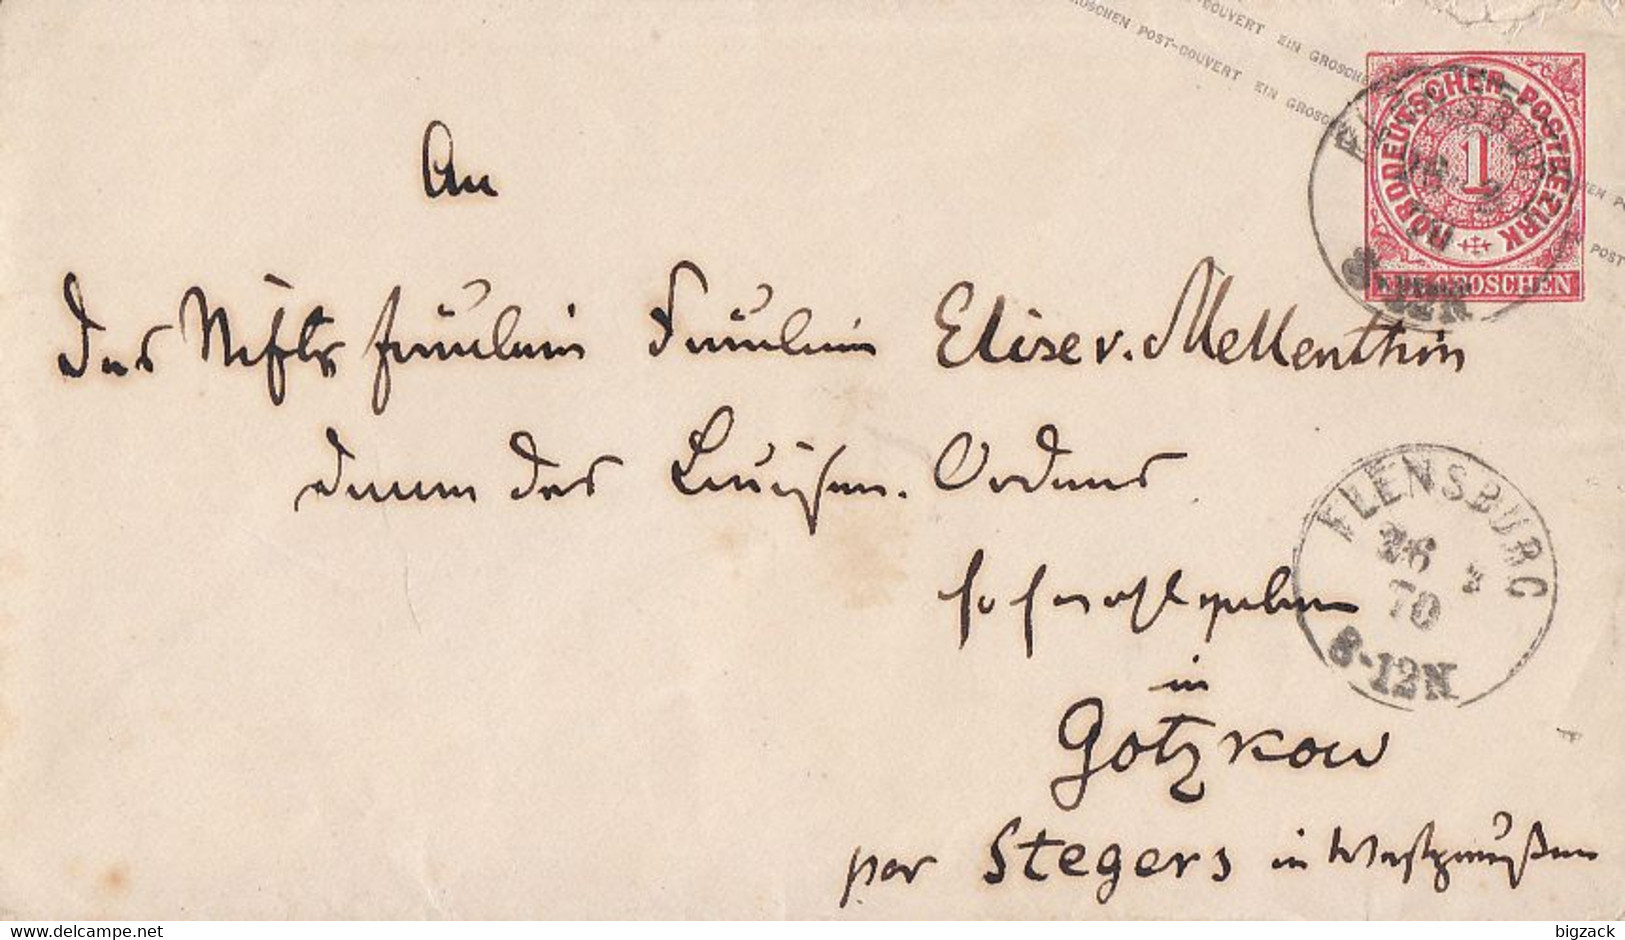 GROSCHEN POST-COUVERT EIN GROSCHEN
COUVERT EIN GROSCHEN
NORDDEUTSCHER POSTBEZIRK
1
EIN GROSCHEN
An
das Stiftsfräulein Fräulein Elise v. Mellenthin
Damm des Louisen-Ordens
hochwohlgeboren
in
Gotzkow
per Stegers in Westpreußen
FLENSBURG
26 3
70
8-12N
delcampe.net
bigzack